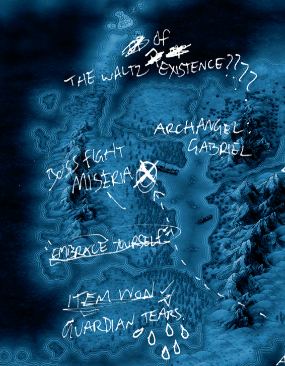 OF
THE WALTZ EXISTENCE????
ARCHANGEL:
GABRIEL
BOSS FIGHT
MISERIA
"EMBRACE YOURSELF"
ITEM WON
GUARDIAN TEARS.